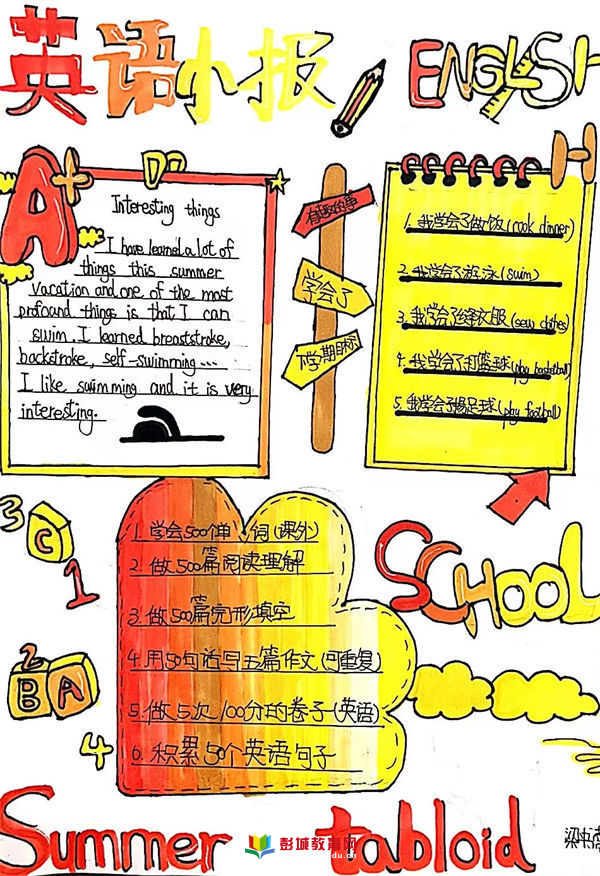 英语小报
ENGLISH
A+
Interesting things
I have learned a lot of
things this summer
vacation and one of the most
profound things is that I can
swim. I learned breaststroke,
backstroke, self-swimming...
I like swimming and it is very
interesting.
有趣的事
学会了
下学期目标
1. 我学会了做饭(cook dinner)
2. 我学会了游泳(swim)
3. 我学会了缝衣服(sew clothes)
4. 我学会了打篮球(play basketball)
5. 我学会了踢足球(play football)
3
C
1
2
B A
4
1. 学会500个单词(课外)
2. 做500篇阅读理解
3. 做500篇完形填空
4. 用50句话写五篇作文(可重复)
5. 做5次100分的卷子(英语)
6. 积累50个英语句子
SCHOOL
Summer tabloid
彭城教育网
du.cn